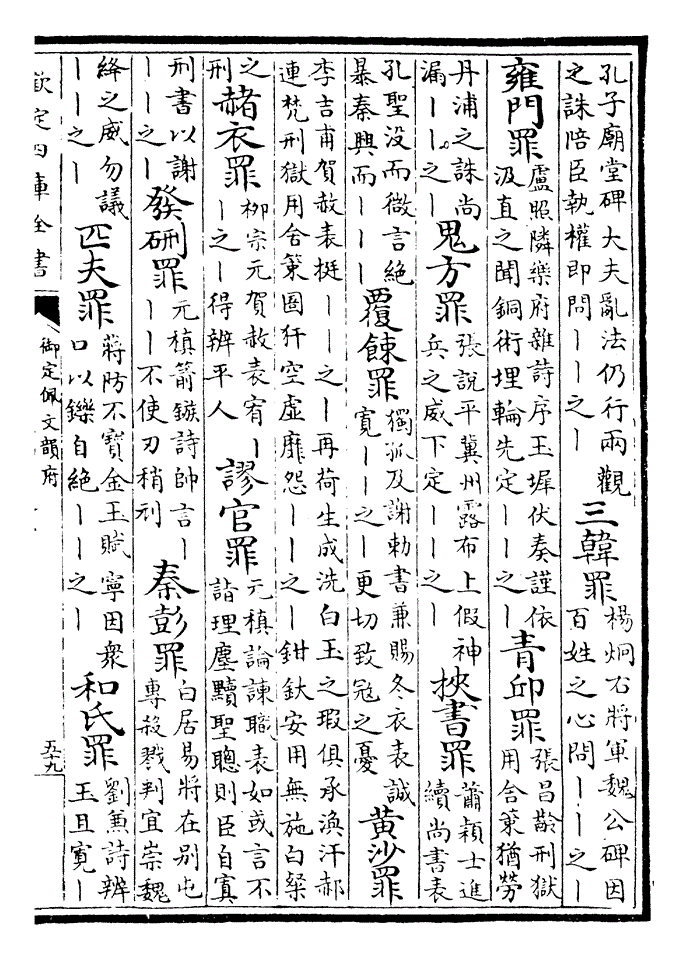 孔子廟堂碑大夫亂法仍行兩觀
之誅陪臣執權即問丨丨之丨
三韓罪
楊炯右將軍魏公碑因
百姓之心問丨丨之丨
雍門罪
盧照隣樂府雜詩序玉墀伏奏謹依
汲直之聞銅術埋輪先定丨丨之丨
青邱罪
張昌齡刑獄
用舍策猶勞
丹浦之誅尚
漏丨丨之丨
鬼方罪
張說平冀州露布上假神
兵之威下定丨丨之丨
挾書罪
蕭穎士進
續尚書表
孔聖没而微言絶
暴秦興而丨丨丨
覆餗罪
獨孤及謝勅書兼賜冬衣表誠
寛丨丨之丨更切致冦之憂
黄沙罪
李吉甫賀赦表挺丨丨之丨再荷生成洗白玉之瑕俱承渙汗郝
連梵刑獄用舍策圄犴空虛靡怨丨丨之丨鉗釱安用無施白粲
之
刑
赭衣罪
柳宗元賀赦表宥丨
丨之丨得辨平人
謬官罪
元稹論諫職表如或言不
詣理塵黷聖聰則臣自寘
刑書以謝
丨丨之丨
發硎罪
元稹箭鏃詩帥言丨
丨丨不使刃稍刓
秦彭罪
白居易將在别屯
專殺戮判宜崇魏
絳之威勿議
丨丨之丨
匹夫罪
蔣防不寳金玉賦寧因衆
口以鑠自絶丨丨之丨
和氏罪
劉兼詩辨
玉且寛丨
欽定四庫全書
御定佩文韻府
五十九